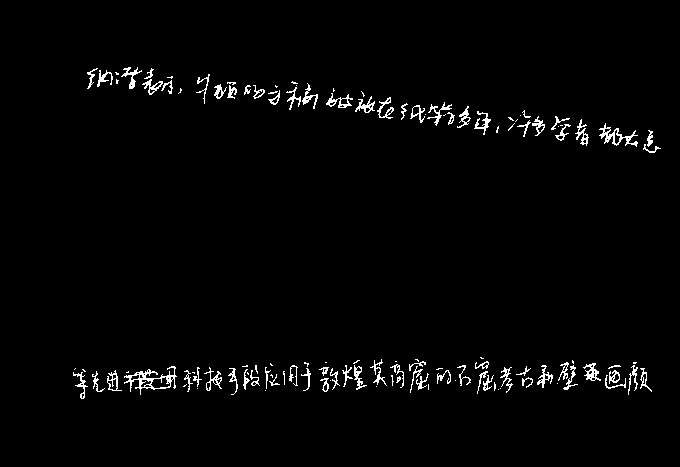 纳潜表示,牛顿的方稿被放在纸箱多年,许多学者都大忽
等先进科技手段应用于敦煌莫高窟的石窟考古和壁画颜